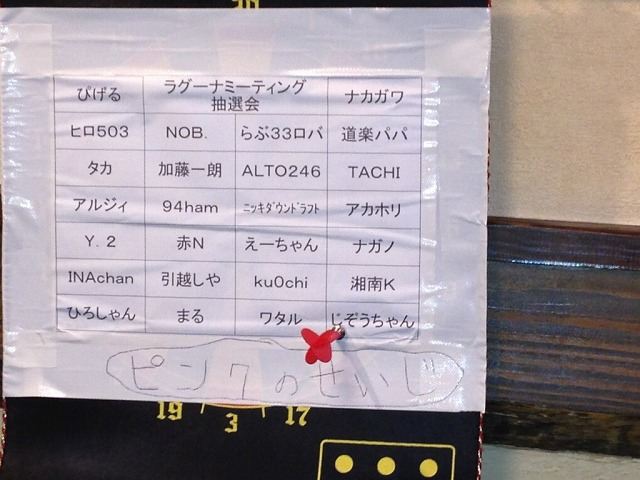 20
ぴげる ラグーナミーティング ナカガワ
抽選会
ヒロ503 NOB. らぶ33ロバ 道楽パパ
タカ 加藤一朗 ALTO246 TACHI
アルジィ 94ham ﾆｯｷﾀﾞｳﾝﾄﾞﾗﾌﾄ アカホリ
Y.2 赤N えーちゃん ナガノ
INAchan 引越しや ku0chi 湘南K
ひろしゃん まる ワタル じぞうちゃん
ピン7のせいじ
19 3 17